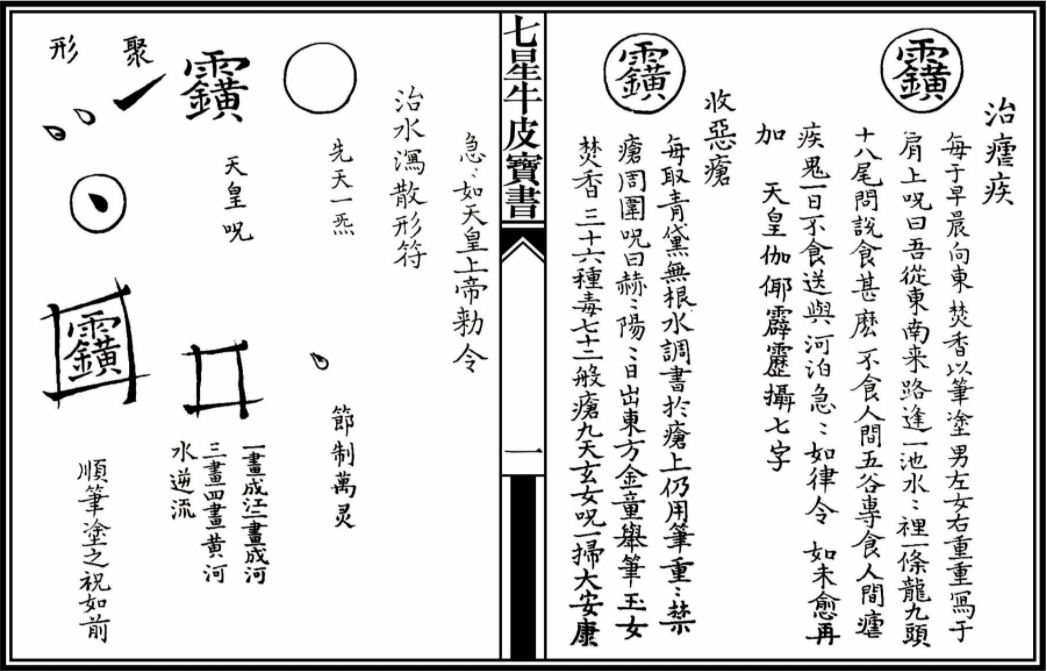 治瘧疾
每于早晨向東焚香以筆塗男左女右重重寫于
肩上呪曰吾從東南来路逢一池水〻裡一條龍九頭
十八尾問說食甚麽不食人間五谷專食人間瘧
疾鬼一日不食送與河泊急〻如律令 如未愈再
加 天皇伽倻霹靂攝七字
收惡瘡
每取青黛無根水調書於瘡上仍用筆重〻禁
瘡周圍呪曰赫〻陽〻日出東方金童舉筆玉女
焚香三十六種毒七十二般瘡九天玄女呪一掃大安康
七星牛皮寶書
一
急〻如天皇上帝勑令
治水瀉散形符
先天一炁
節制萬灵
天皇呪
一畫成江二畫成河
三畫四畫黄河
水逆流
聚
形
順筆塗之祝如前